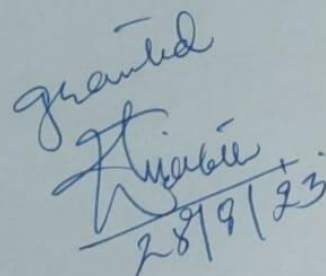 granted
28/9/23